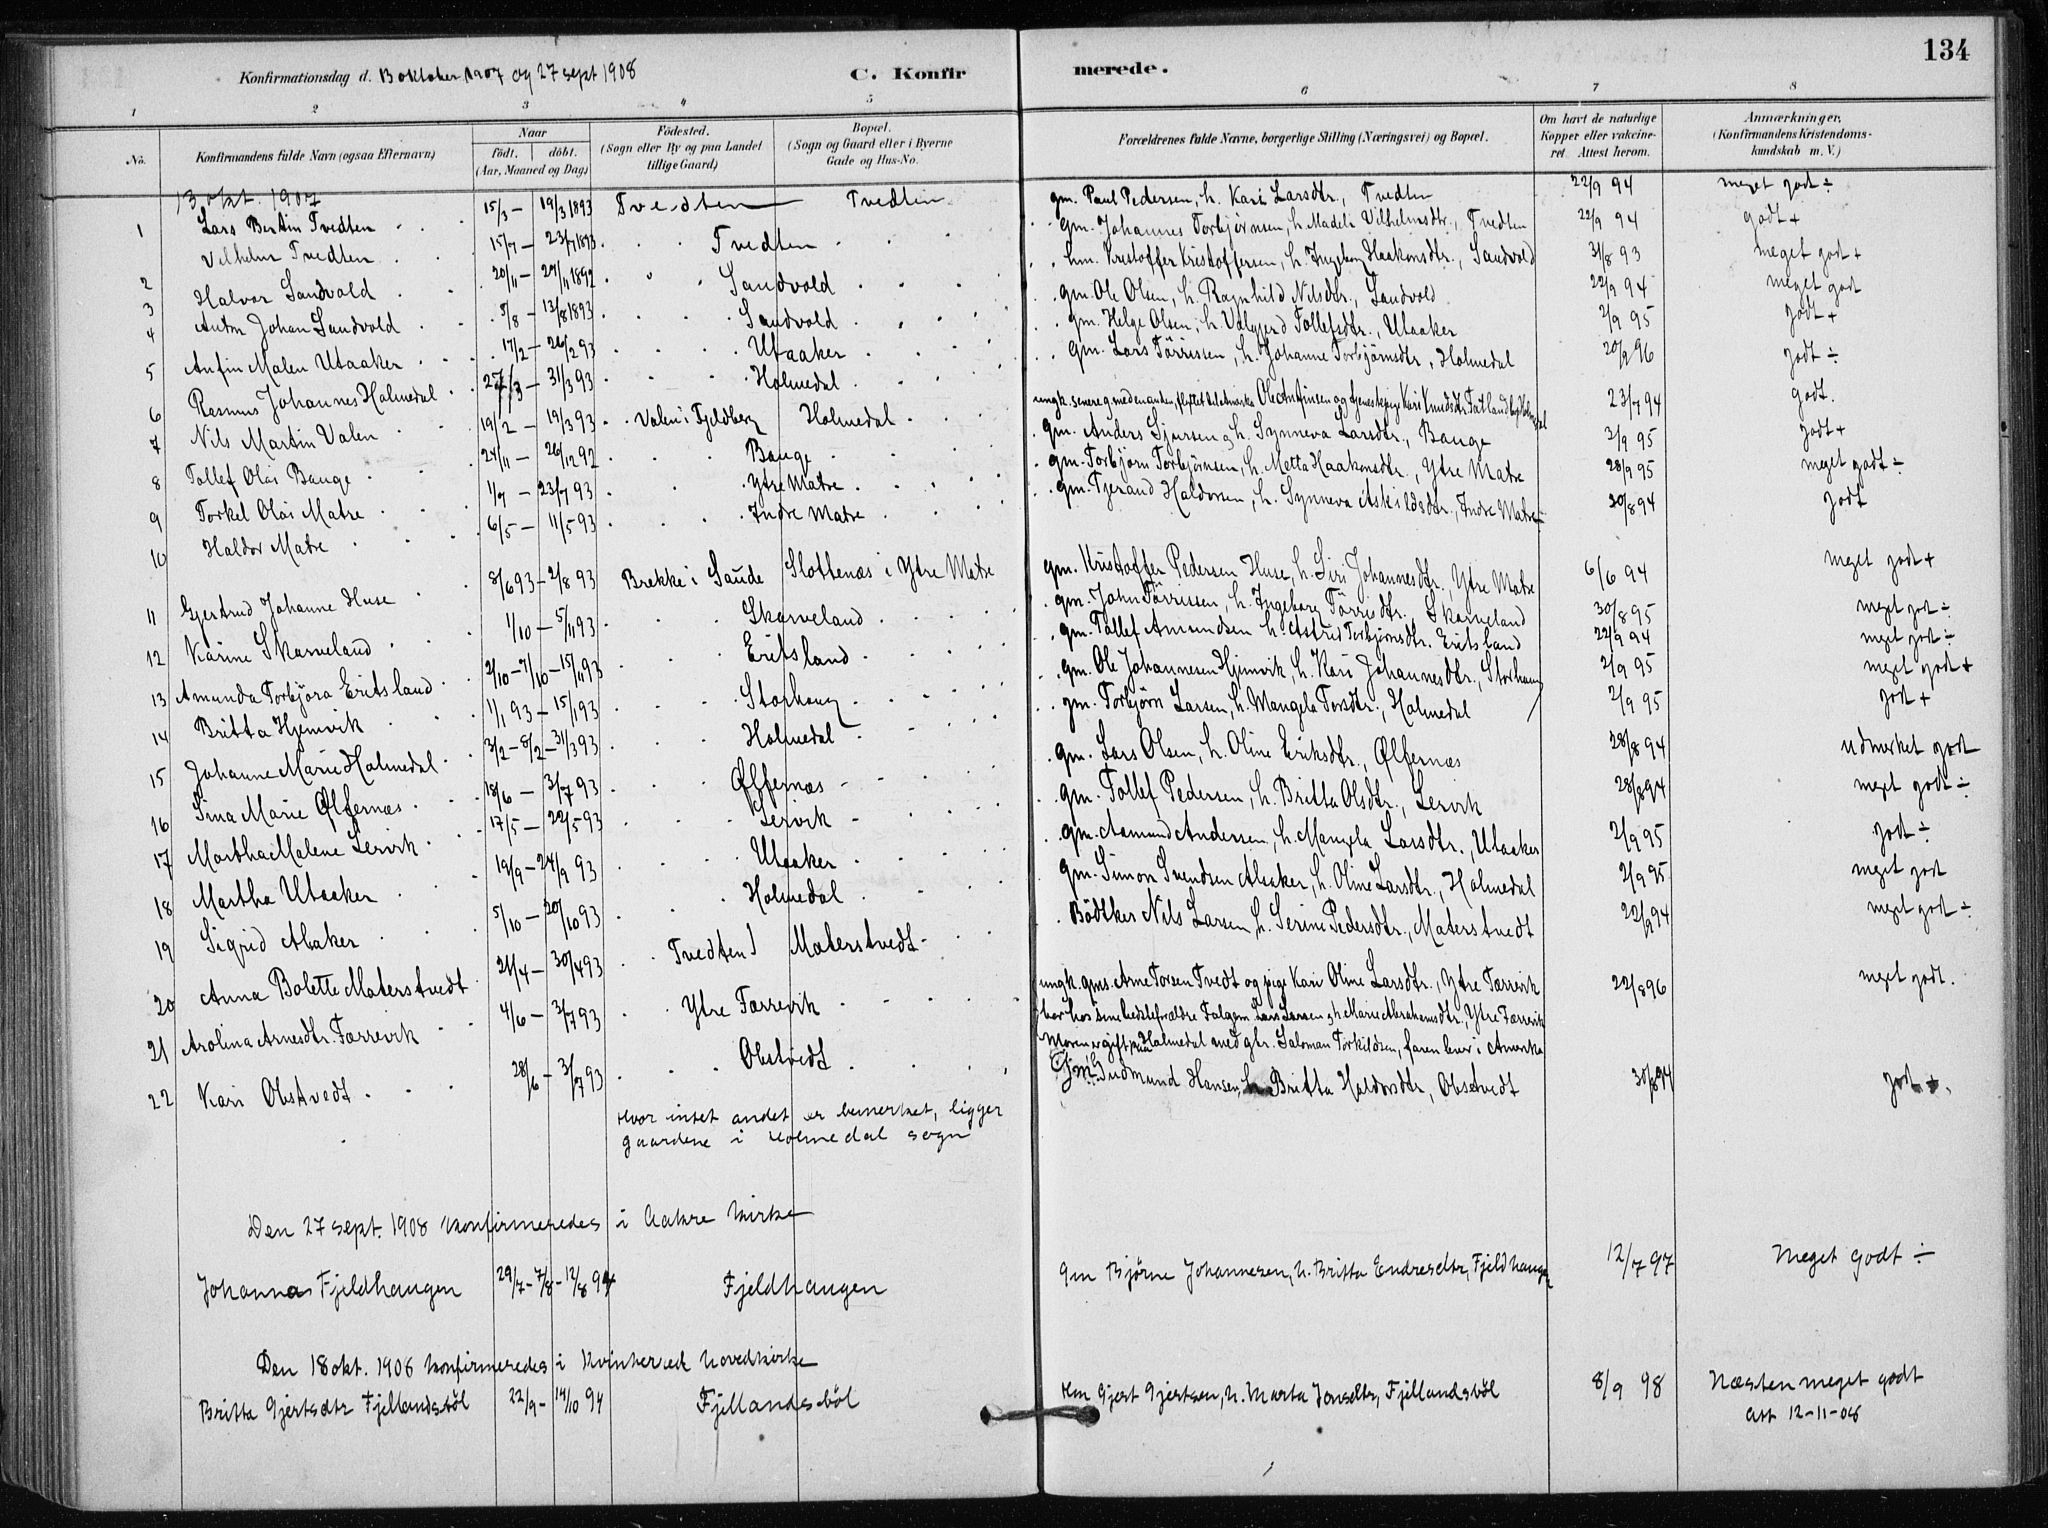 134
Konfirmationsdag d. 13 oktober 1907 og 27 sept 1908
C. Konfirmerede.
1 2 3 4 5 6 7 8
No.
Konfirmandens fulde Navn (ogsaa Efternavn)
Naar
født. døbt.
(Aar, Maaned og Dag)
Fødested.
(Sogn eller By og paa Landet
tillige Gaard)
Bopæl.
(Sogn og Gaard eller i Byerne
Gade og Hus-No.
Forældrenes fulde Navne, borgerlige Stilling (Næringsvei) og Bopæl.
Om havt de naturlige
Kopper eller vakcine-
ret. Attest herom.
Anmærkninger,
(Konfirmandens Kristendoms-
kundskab m. V.)
13 okt. 1907
1 Lars Bertin Tvedten 15/3 – 19/3 1893 Tvedten Tvedten gm. Paul Pedersen, h. Kari Larsdtr., Tvedten 22/9 94 meget godt ÷
Vilhelm Tvedten 15/7 – 23/7 1893 Tvedten gm. Johannes Torbjørnsen, h. Madele Vilhelmsdtr., Tvedten 22/9 94 godt +
2 Halvor Sandvold 20/11 – 27/11 1892 Sandvold hm. Kristoffer Kristoffersen, h. Ingeborg Haakonsdtr., Sandvold 31/8 93 meget godt +
3 Anton Johan Sandvold 5/8 – 13/8 1893 Sandvold gm. Ole Olsen, h. Ragnhild Nilsdtr., Sandvold 22/9 94 meget godt
4 Anfin Malen Utaaker 17/2 – 26/2 93 Utaaker gm. Helge Olsen, h. Valgjerd Tollefsdtr., Utaaker 2/9 95 godt +
5 Rasmus Johannes Holmedal 27/3 – 31/3 93 Holmedal gm. Lars Tørrissen, h. Johanne Torbjørnsdtr., Holmedal 20/9 96 godt ÷
6 Nils Martin Valen 19/2 – 19/3 93 Valen i Fjeldberg Holmedal ungk. senere g. med en anden, Ole Anfinsen og tjenestepige Kari Knudsdtr. 23/7 94 godt.
7 Tollef Olai Bauge 24/11 – 26/12 92 Bauge gm. Anders Sjursen, h. Synneva Larsdtr., Bauge 2/9 95 godt +
8 Torkel Olai Matre 1/7 – 23/7 93 Ytre Matre gm. Torbjørn Torbjørnsen, h. Metta Haakonsdtr., Ytre Matre 28/9 95 meget godt ÷
9 Haldor Matre 6/5 – 11/5 93 Indre Matre gm. Tjerand Haldorsen, h. Synneva Askildsdtr., Indre Matre 20/8 94 godt
10
11 Gjertrud Johanne Huse 8/6 93 – 2/8 93 Brekke i Saude Slottenæs i Ytre Matre gm. Kristoffer Pedersen Huse, h. Siri Johannesdtr., Ytre Matre 6/6 94 meget godt +
12 Karine Skarveland 1/10 – 5/11 93 Skarveland gm. John Tørrissen, h. Ingeborg Tørrisdtr. Skarveland 30/8 95 meget godt ÷
13 Amanda Torbjøra Eritsland 2/10 – 7/10 – 15/11 93 Eritsland gm. Tollef Amundsen h. Astrid Torbjørnsdtr. Eritsland 22/9 94 meget godt ÷
14 Britta Hjemvik 1/1 93 – 15/1 93 Storhaug gm. Ole Johannesen Hjemvik, h. Kari Johannesdtr., Storhaug 2/9 95 meget godt +
15 Johanne Marie Holmedal 3/2 – 8/2 – 31/3 93 Holmedal gm. Torbjørn Larsen, h. Mangela Torsdtr., Holmedal 2/9 95 godt +
16 Sina Marie Ølfernæs 18/6 – 3/7 93 Ølfernæs gm. Lars Olsen, h. Oline Eriksdtr., Ølfernæs 28/8 94 udmerket godt
17 Martha Malene Lervik 17/5 – 22/5 93 Lervik gm. Tollef Pedersen, h. Britta Olsdtr., Lervik 28/8 94 meget godt ÷
18 Martha Utaaker 19/9 – 24/9 93 Utaaker gm. Aamund Andersen, h. Mangela Larsdtr., Utaaker 2/9 95 godt ÷
19 Sigrid Abaker 5/10 – 20/10 93 Holmedal gm. Simon Svendsen Abaker, h. Oline Larsdtr., Holmedal 2/9 95 meget godt
20 Anna Bolette Materstvedt 21/4 – 30/4 93 Tvedten Materstvedt Bødtker Nils Larsen, h. Serine Pedersdtr., Materstvedt 22/9 94 meget godt ÷
21 Arolina Arnesdtr. Færrevik 4/6 – 3/7 93 Ytre Færrevik ungk. gms. Arne Torsen Tvedt og pige Kari Oline Larsdtr., Ytre Færrevik 22/8 96 meget godt.
bor hos sine bedsteforældre Lars Larsen, h. Marie Abrahamsdtr., Ytre Færrevik
Moren er gift paa Holmedal med gbr. Saloman Torkildsen, faren bor i Amerika
22 Kari Obstvedt 28/6 – 3/7 93 Obstvedt Gm. Gudmund Hansen, h. Britta Haldorsdtr., Obstvedt 30/8 94 godt +.
Hvor intet andet er bemerket, ligger
gaardene i Holmedal sogn
Den 27 sept. 1908 konfirmeredes i Aakre kirke
Johannes Fjeldhaugen 29/7 – 7/8 – 12/8 94 Fjeldhaugen gm Bjørne Johannesen, h. Britta Endresdtr, Fjeldhaugen 12/7 97 Meget godt ÷
Den 18 okt. 1908 konfirmeredes i Kvinherred hovedkirke
Britta Gjertsdtr Fjellandsbøl 22/9 – 14/10 94 Fjellandsbøl Hm Gjert Gjertsen, h. Marta Jonsdtr, Fjellandsbøl 8/9 98 Næsten meget godt
Att 12-11-08